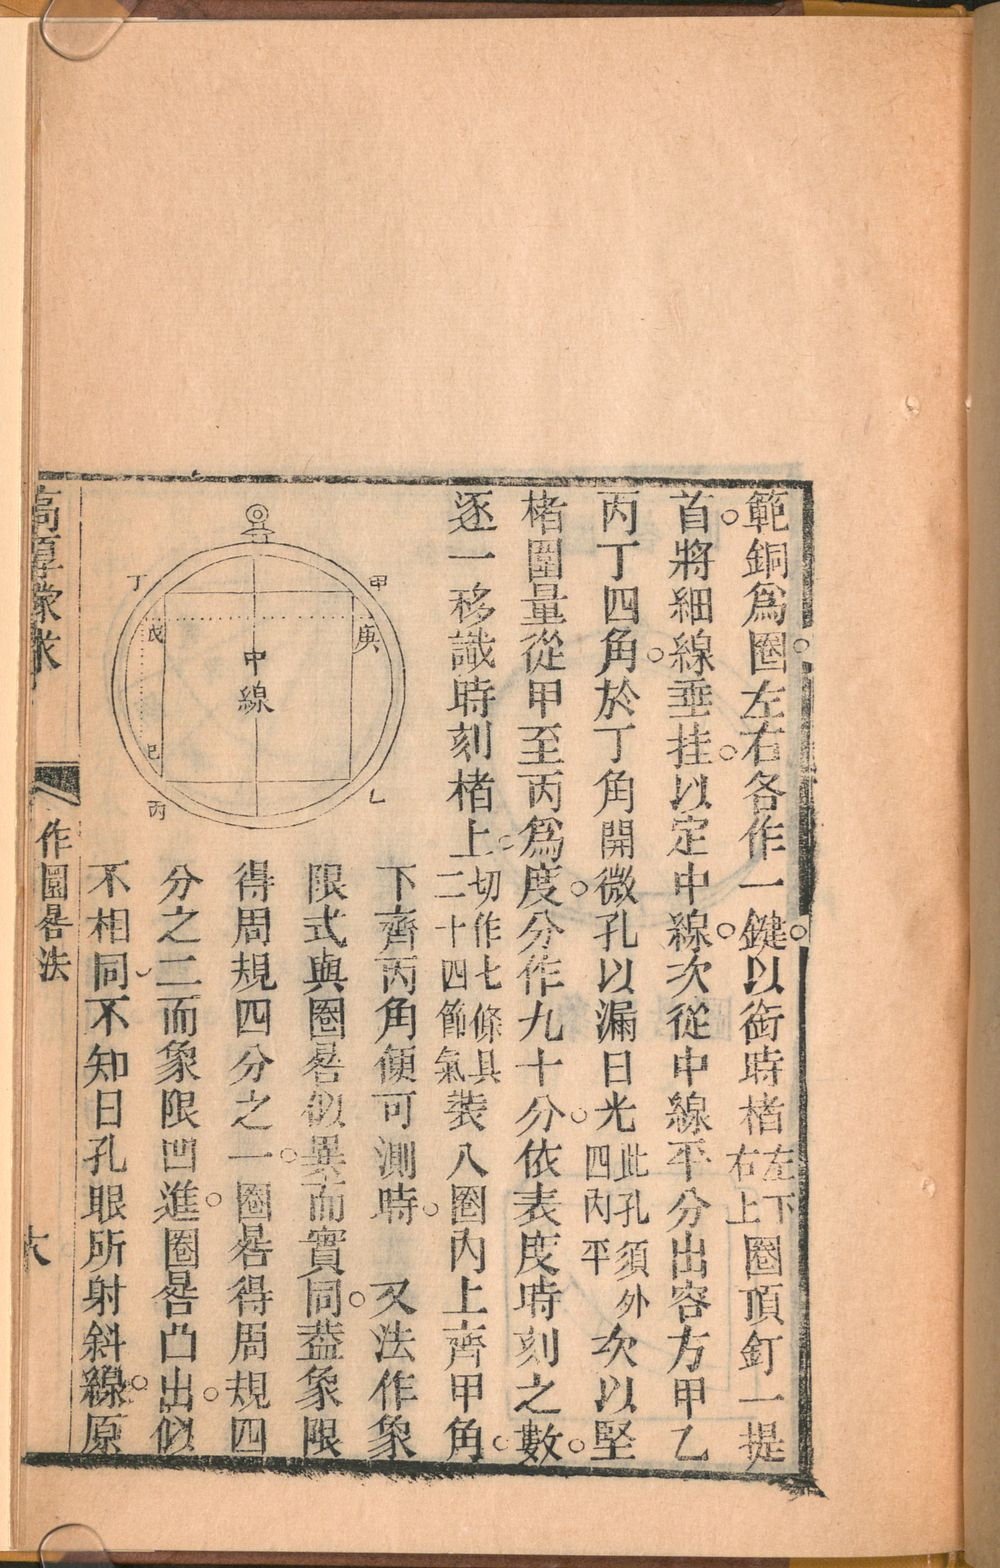 範銅爲圈。左右各作一鍵。以銜時楮左下右上圈頂釘一提
首。將細線垂挂。以定中線。次從中線平分出容方甲乙
丙丁四角。於丁角開微孔以漏日光此孔須外四內平次以堅
楮圍量從甲至丙爲度。分作九十分。依表度時刻之數。
逐一移識時刻楮上。切作七條具二十四節氣裝入圈內上齊甲角。
下齊丙角便可測時。 又法作象
限式與圈晷似異而實同。葢象限
得周規四分之一。圈晷得周規四
分之二而象限凹進。圈晷凸出。似
不相同、不知日孔眼所射斜線。原
甲
乙
丙
丁
戊
己
庚
中線
高厚蒙求
作圜晷法